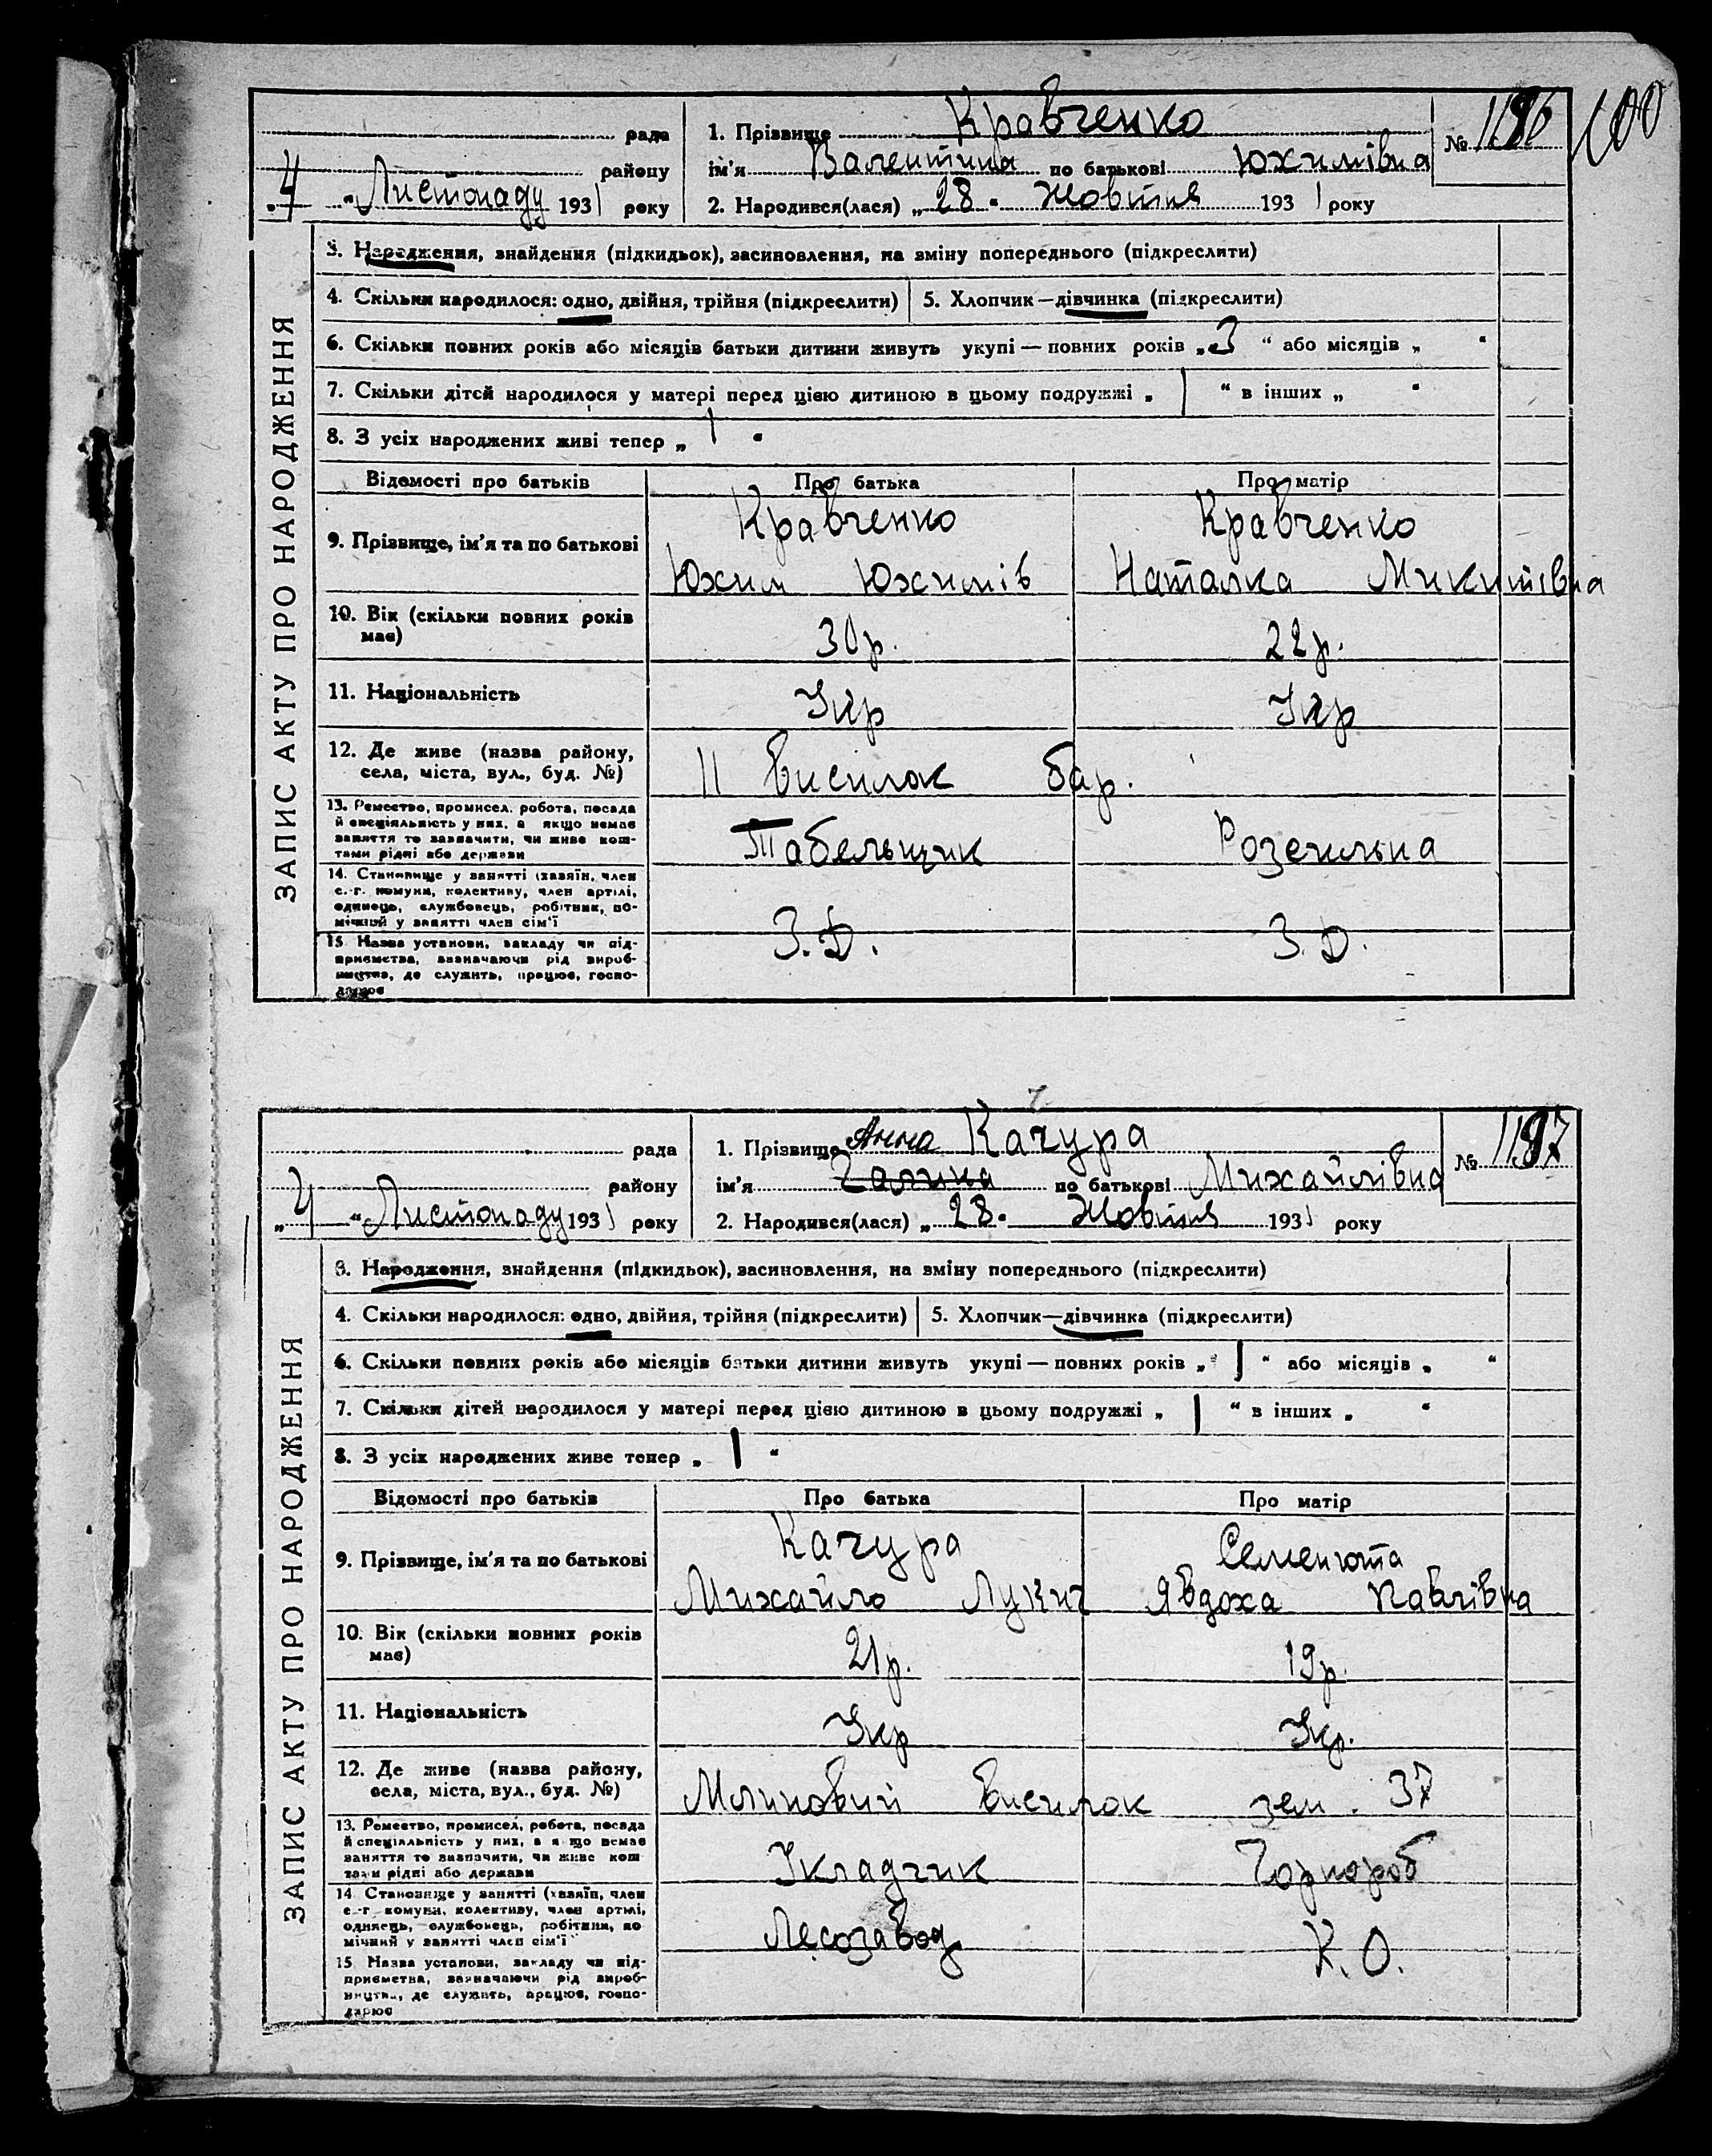 рада
району
„4" Листопаду 1931 року
1. Прізвище Кравченко
ім'я Валентина по батькові Юхимівна
2. Народився(лася) „28" Жовтня 1931 року
№ 1186
100
ЗАПИС АКТУ ПРО НАРОДЖЕННЯ
3. Народження, знайдення (підкидьок), засиновлення, на зміну попереднього (підкреслити)
4. Скільки народилося: одно, двійня, трійня (підкреслити) 5. Хлопчик—дівчинка (підкреслити)
6. Скільки повних років або місяців батьки дитини живуть укупі — повних років „3" або місяців „ "
7. Скільки дітей народилося у матері перед цією дитиною в цьому подружжі „1" в інших „ "
8. З усіх народжених живі тепер „1"
Відомості про батьків Про батька Про матір
9. Прізвище, ім'я та по батькові
Кравченко Кравченко
Юхим Юхимів Наталка Микитівна
10. Вік (скільки повних років
має)
30р. 22р.
11. Національність Укр Укр
12. Де живе (назва району,
села, міста, вул., буд. №)
II висилок бар.
13. Ремество, промисел, робота, посада
й спеціяльність у них, а якщо немає
заняття то зазначити, чи живе кош-
тами рідні або держави
Табельщик Розсильна
14. Становище у занятті (хазяїн, член
с.-г. комуни, колективу, член артілі,
одинець, службовець, робітник, по-
мічний у занятті член сім'ї
З.Д. З.Д.
15. Назва установи, закладу чи під-
приємства, зазначаючи рід вироб-
ництва, де служить, працює, госпо-
дарює
рада
району
„4" Листопаду 1931 року
1. Прізвище Анна Качура
ім'я Галина по батькові Михайлівна
2. Народився(лася) „28" Жовтня 1931 року
№ 1187
ЗАПИС АКТУ ПРО НАРОДЖЕННЯ
3. Народження, знайдення (підкидьок), засиновлення, на зміну попереднього (підкреслити)
4. Скільки народилося: одно, двійня, трійня (підкреслити) 5. Хлопчик—дівчинка (підкреслити)
6. Скільки повних років або місяців батьки дитини живуть укупі — повних років „1" або місяців „ "
7. Скільки дітей народилося у матері перед цією дитиною в цьому подружжі „1" в інших „ "
8. З усіх народжених живе тепер „1"
Відомості про батьків Про батька Про матір
9. Прізвище, ім'я та по батькові
Качура Семенюта
Михайло Лукич Явдоха Павлівна
10. Вік (скільки повних років
має)
21р. 19р.
11. Національність Укр Укр.
12. Де живе (назва району,
села, міста, вул., буд. №)
Млиновий висилок зем. 37
13. Ремество, промисел, робота, посада
й спеціяльність у них, а якщо немає
заняття то визначити, чи живе кош
тами рідні або держави
Укладчик Чорнороб
14 Становище у занятті (хазяїн, член
с.-г комуни, колективу, член артілі,
одинець, службовець, робітник, по
мічний у занятті член сім'ї
Лесозавод К.О.
15 Назва установи, закладу чи під-
приємства, зазначаючи рід вироб-
ництва, де служить, працює, госпо-
дарює